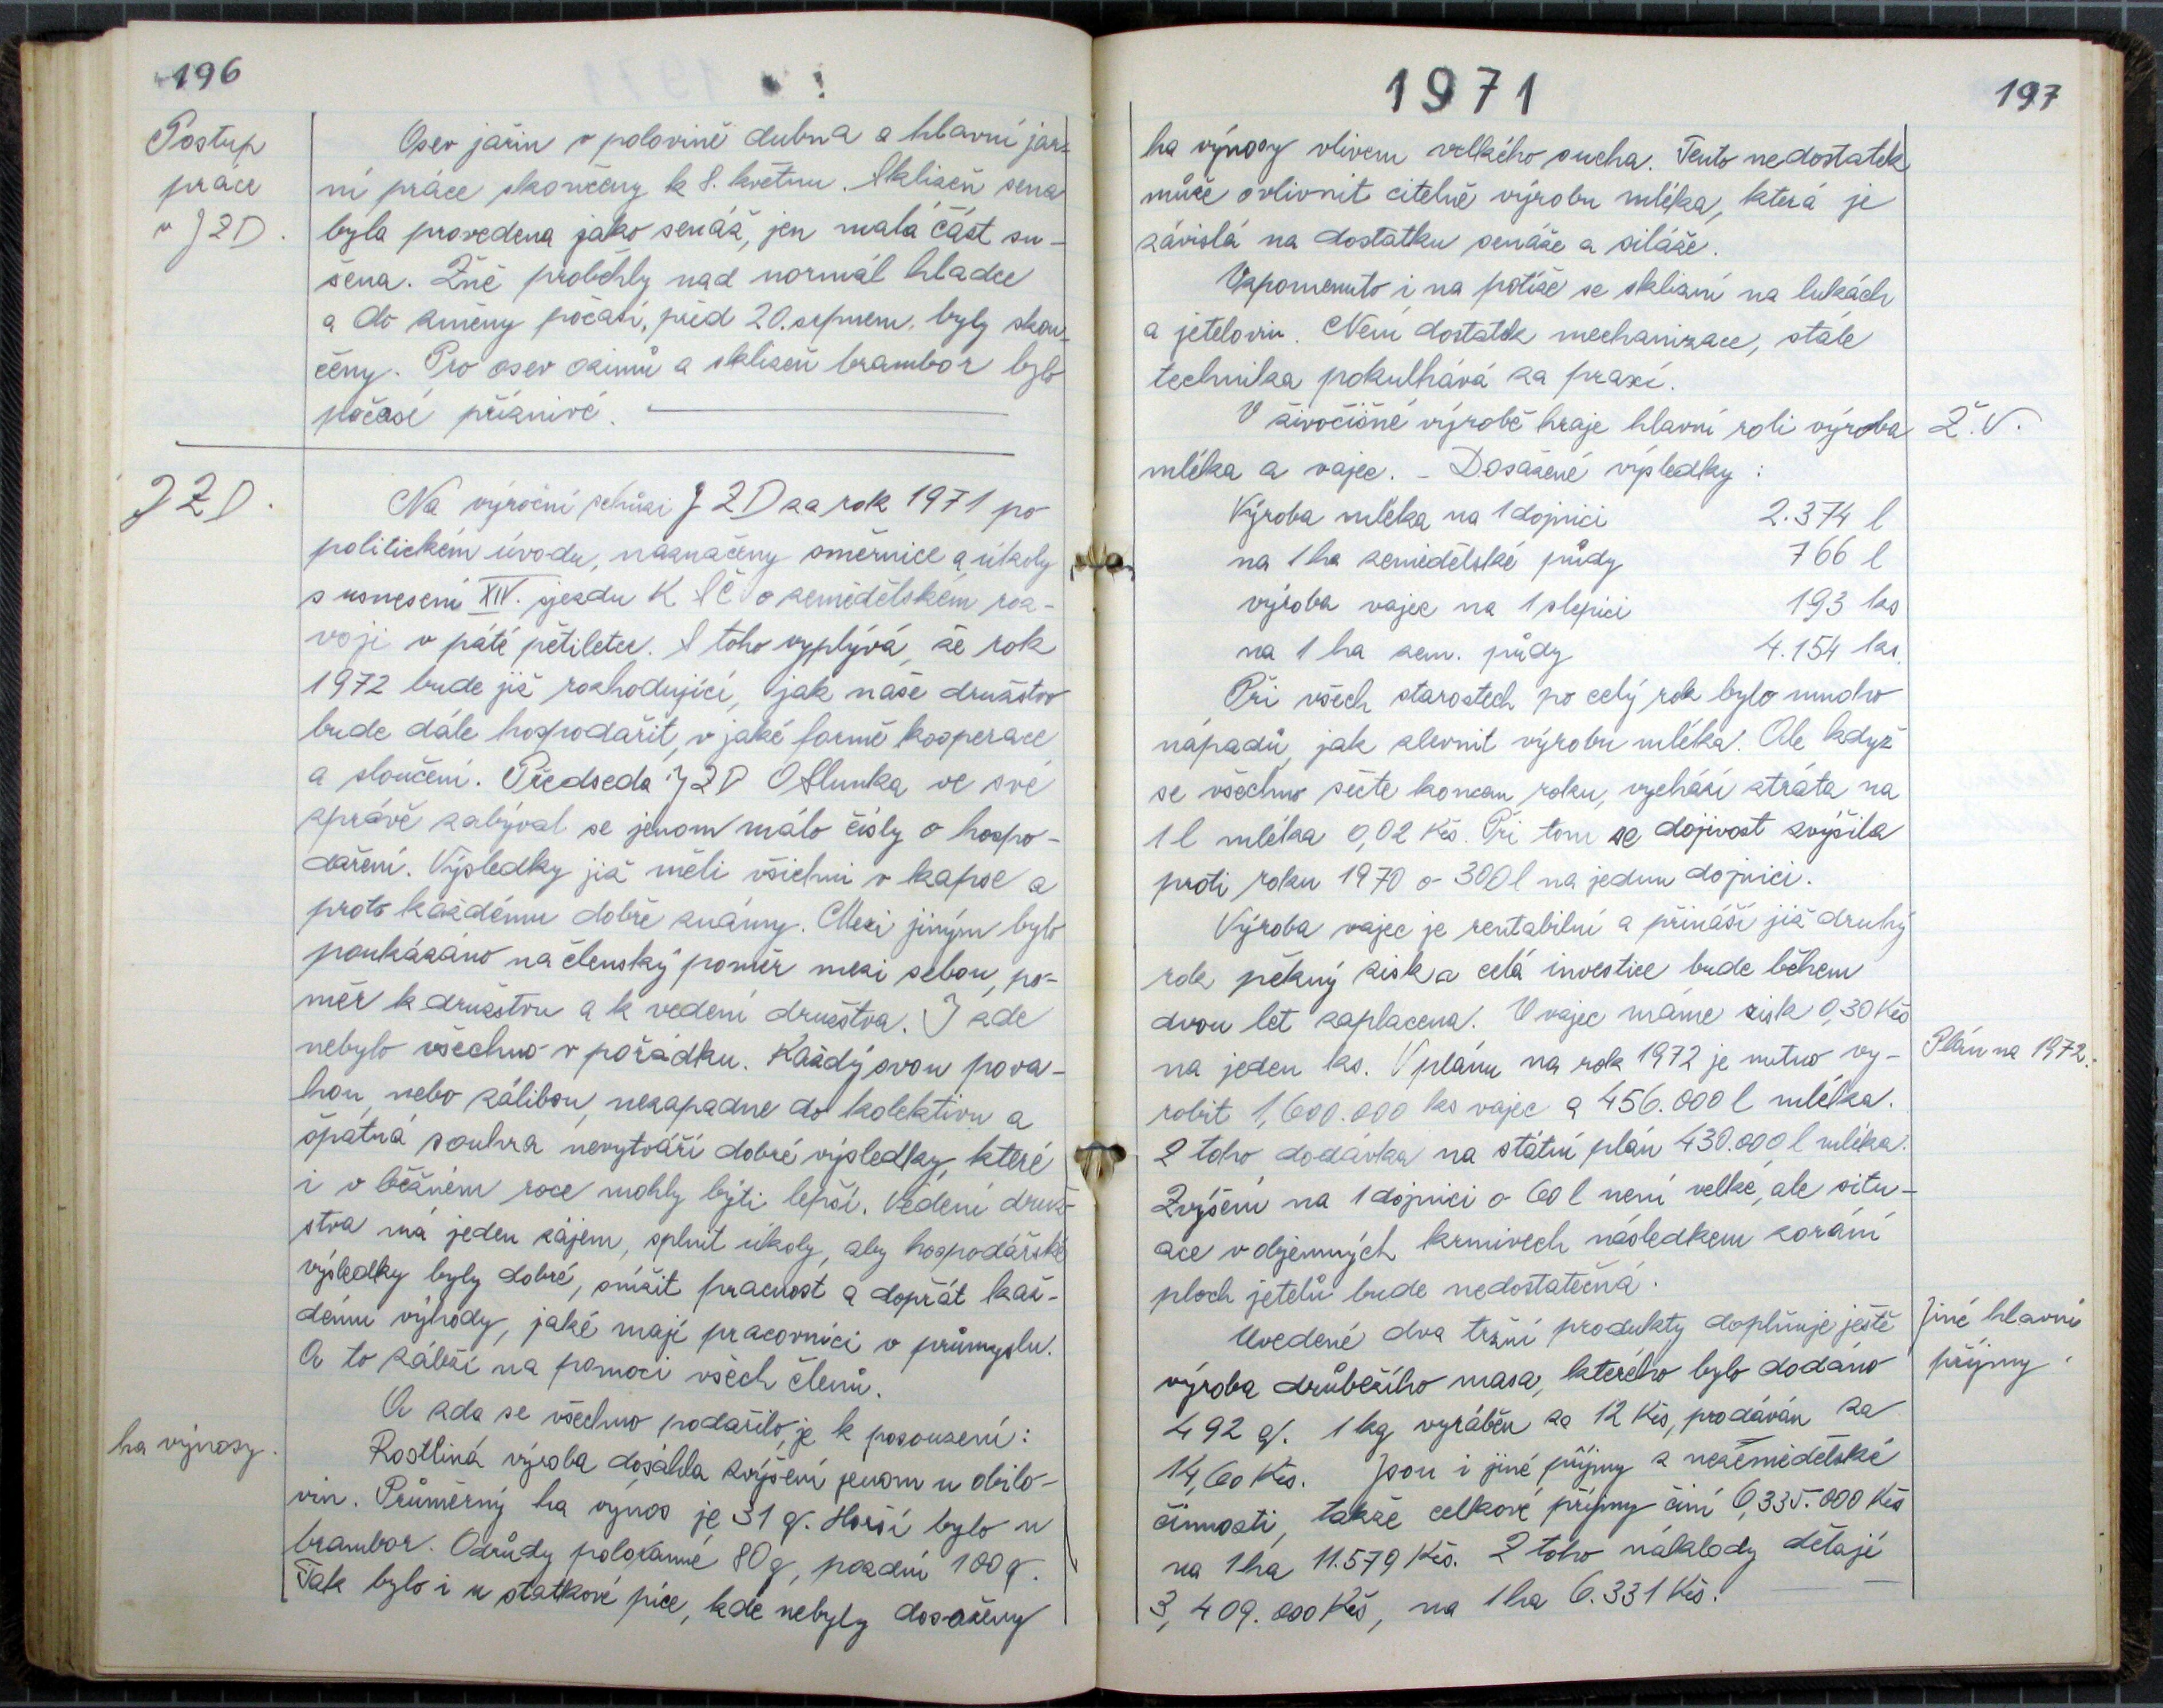 196
Postup
práce
v JZD.
Osev jařin v polovině dubna a hlavní jar-
ní práce skončeny k 8. květnu. Sklizeň sena
byla provedena jako senáž, jen malá část su-
šena. Žně proběhly nad normál hladce
a do změny počasí, před 20. srpnem, byly skon-
čeny. Pro osev ozimů a sklizeň brambor bylo
počasí příznivé.
JZD.
Na výroční schůzi JZD za rok 1971 po
politickém úvodu, naznačeny směrnice a úkoly
s usnesení XIV. sjezdu KSČ o zemědělském roz-
voji v páté pětiletce. S toho vyplývá, že rok
1972 bude již rozhodující, jak naše družstvo
bude dále hospodařit, v jaké formě kooperace
a sloučení. Předseda JZD O Slunka ve své
zprávě zabýval se jenom málo čísly o hospo-
daření. Výsledky již měli všichni v kapse a
proto každému dobře známy. Mezi jiným bylo
poukázáno na členský poměr mezi sebou, po-
měr k družstvu a k vedení družstva. I zde
nebylo všechno v pořádku. Každý svou pova-
hou, nebo zálibou, nezapadne do kolektivu a
špatná souhra nevytváří dobré výsledky, které
i v běžném roce mohly býti lepší. Vedení druž-
stva má jeden zájem, splnit úkoly, aby hospodářské
výsledky byly dobré, snížit pracnost a dopřát kaž-
dému výhody, jaké mají pracovníci v průmyslu.
A to záleží na pomoci všech členů.
A zda se všechno podařilo, je k posouzení:
ha výnosy.
Rostliná výroba dosáhla zvýšení jenom u obilo-
vin. Průměrný ha výnos je 31 q. Horší bylo u
brambor. Odrůdy poloranné 80 q, pozdní 100 q.
Tak bylo i u statkové píce, kde nebyly dosaženy
1971
197
ha výnosy vlivem velkého sucha. Tento nedostatek
může ovlivnit citelně výrobu mléka, která je
závislá na dostatku senáže a siláže.
Vzpomenuto i na potíže se sklizní na lukách
a jetelovin. Není dostatek mechanizace, stále
technika pokulhává za praxí.
V živočišné výrobě hraje hlavní roli výroba
Ž.V.
mléka a vajec. - Dosažené výsledky:
Výroba mléka na 1 dojnici 2.374 l
na 1 ha zemědělské půdy 766 l
výroba vajec na 1 slepici 193 ks
na 1 ha zem. půdy 4.154 ks.
Při všech starostech po celý rok bylo mnoho
nápadů, jak zlevnit výrobu mléka. Ale když
se všechno sečte koncem roku, vychází ztráta na
1 l mléka 0,02 Kčs. Při tom se dojivost zvýšila
proti roku 1970 o 300 l na jednu dojnici.
Výroba vajec je rentabilní a přináší již druhý
rok pěkný zisk a celá investice bude během
dvou let zaplacena. U vajec máme zisk 0,30 Kčs
na jeden ks. V plánu na rok 1972 je nutno vy-
Plán na 1972.
robit 1,600.000 ks vajec a 456.000 l mléka.
Z toho dodávka na státní plán 430.000 l mléka.
Zvýšení na 1 dojnici o 60 l není velké, ale situ-
ace v objemných krmivech následkem zorání
ploch jetelů bude nedostatečná.
Uvedené dva tržní produkty doplňuje ještě
Jiné hlavní
příjmy.
výroba drůbežího masa, kterého bylo dodáno
492 q. 1 kg vyráběn za 12 Kčs, prodáván za
14,60 Kčs. Jsou i jiné příjmy z nezemědělské
činnosti, takže celkové příjmy činí 6,335.000 Kčs
na 1 ha 11.579 Kčs. Z toho náklady dělají
3,409.000 Kčs, na 1 ha 6.331 Kčs.